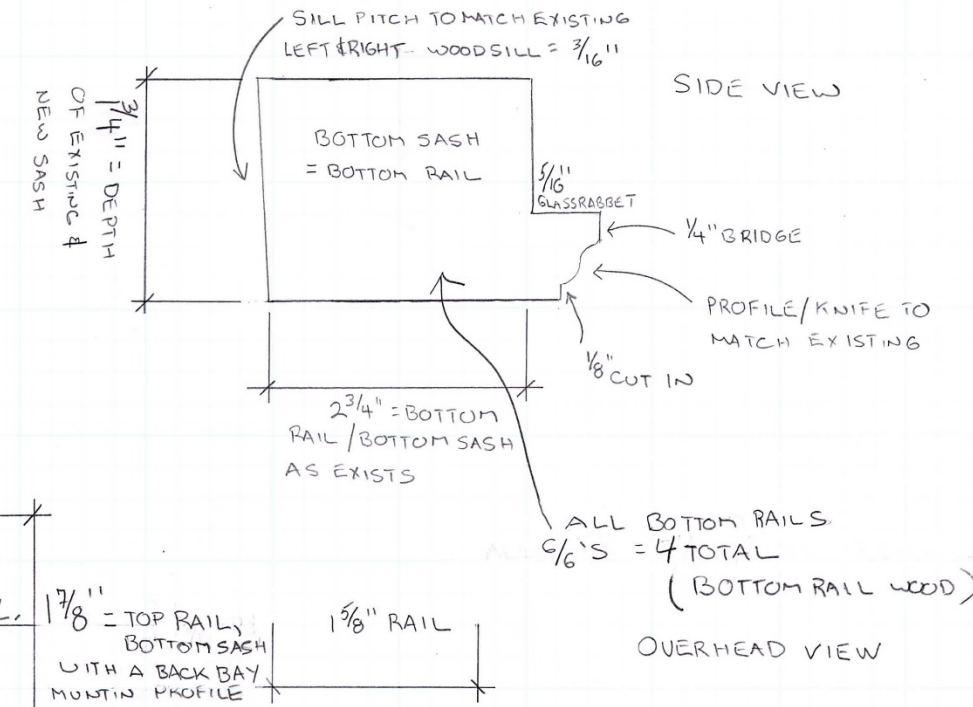 SILL PITCH TO MATCH EXISTING
LEFT & RIGHT. WOODSILL = 3/16"
SIDE VIEW
3/4" = DEPTH
OF EXISTING &
NEW SASH
BOTTOM SASH
= BOTTOM RAIL
5/16"
GLASSRABBET
1/4" BRIDGE
PROFILE/KNIFE TO
MATCH EXISTING
1/8" CUT IN
2 3/4" = BOTTOM
RAIL/BOTTOM SASH
AS EXISTS
ALL BOTTOM RAILS
6/6'S = 4 TOTAL
(BOTTOM RAIL WOOD)
1 7/8" = TOP RAIL,
BOTTOM SASH
WITH A BACK BAY
MUNTIN PROFILE
1 5/8" RAIL
OVERHEAD VIEW